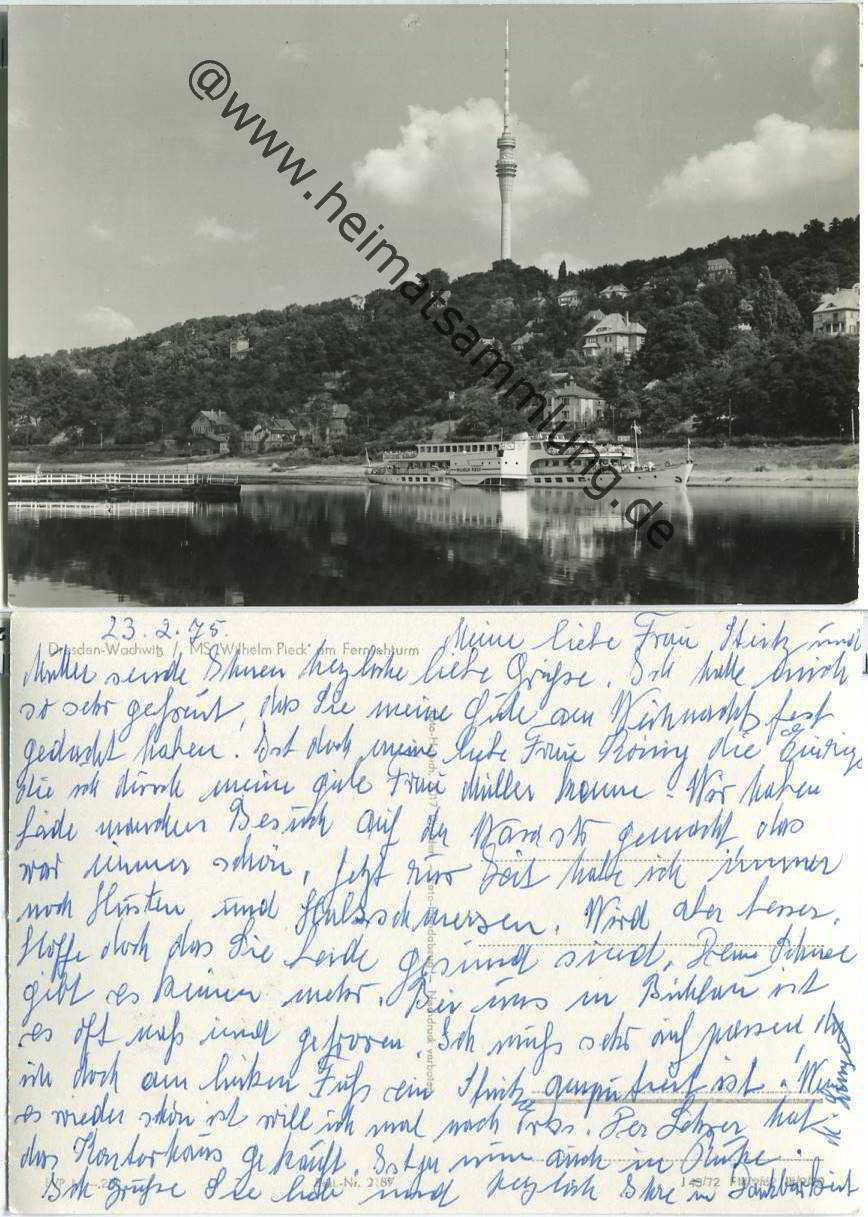 @www.heimatsammlung.de
23.2.75.
Dresden-Wachwitz / MS "Wilhelm Pieck" am Fernsehturm
Meine liebe Frau und
Müller sende Ihnen herzliche liebe Grüße. Ich habe mich
so sehr gefreut, das Sie meine Gute am Weihnachtsfest
gedacht haben. Ist doch meine liebe Frau König die Einzige
die ich durch meine gute Frau Müller kenne - Wir haben
beide manchen Besuch auf der gemacht das
war immer schön, jetzt zur Zeit habe ich immer
noch Husten und Halsschmerzen. Wird aber besser.
Hoffe doch das Sie beide gesund sind. Denn Schnee
gibt es keinen mehr. Bei uns in Bühlau ist
es oft naß und gefroren. Ich muß sehr auf passen, da
ich doch am linken Fuß ein amputiert ist. Wenn
es wieder schön ist will ich mal nach Der Lehrer hat
das gekauft. Ist ja nun auch in Ruhe.
Ich Grüße Sie lieb und herzlich Ihre in Dankbarkeit
Best.-Nr. 2189
J 43/72